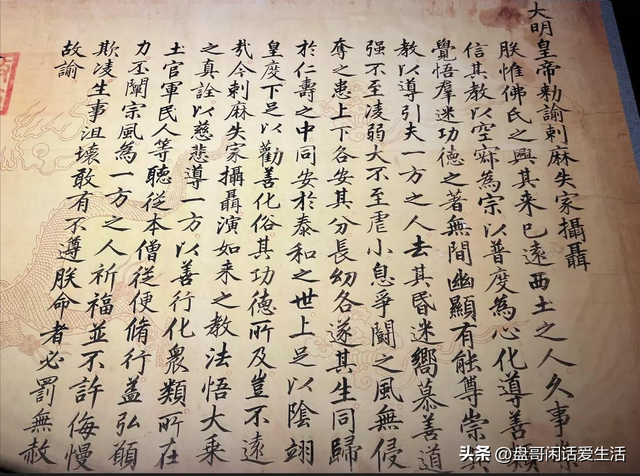 大明皇帝勅諭剌麻失家攝聶
朕惟佛氏之興其來已遠西土之人久事
信其教以空寂為宗以普度為心化導善
覺悟羣迷功德之著無間幽顯有能尊崇其
教以導引夫一方之人去其昏迷嚮慕善道
强不至凌弱大不至虐小息爭鬪之風無侵
奪之患上下各安其分長幼各遂其生同歸
於仁壽之中同安於泰和之世上足以陰翊
皇度下足以勸善化俗其功德所及豈不遠
哉今剌麻失家攝聶演如来之教法悟大乗
之真詮以慈悲導一方以善行化衆類所在
土官軍民人等聽從本僧從便脩行益弘願
力丕闡宗風為一方之人祈福並不許侮慢
欺凌生事沮壞敢有不遵朕命者必罰無赦
故諭
头条 @盘哥闲话爱生活